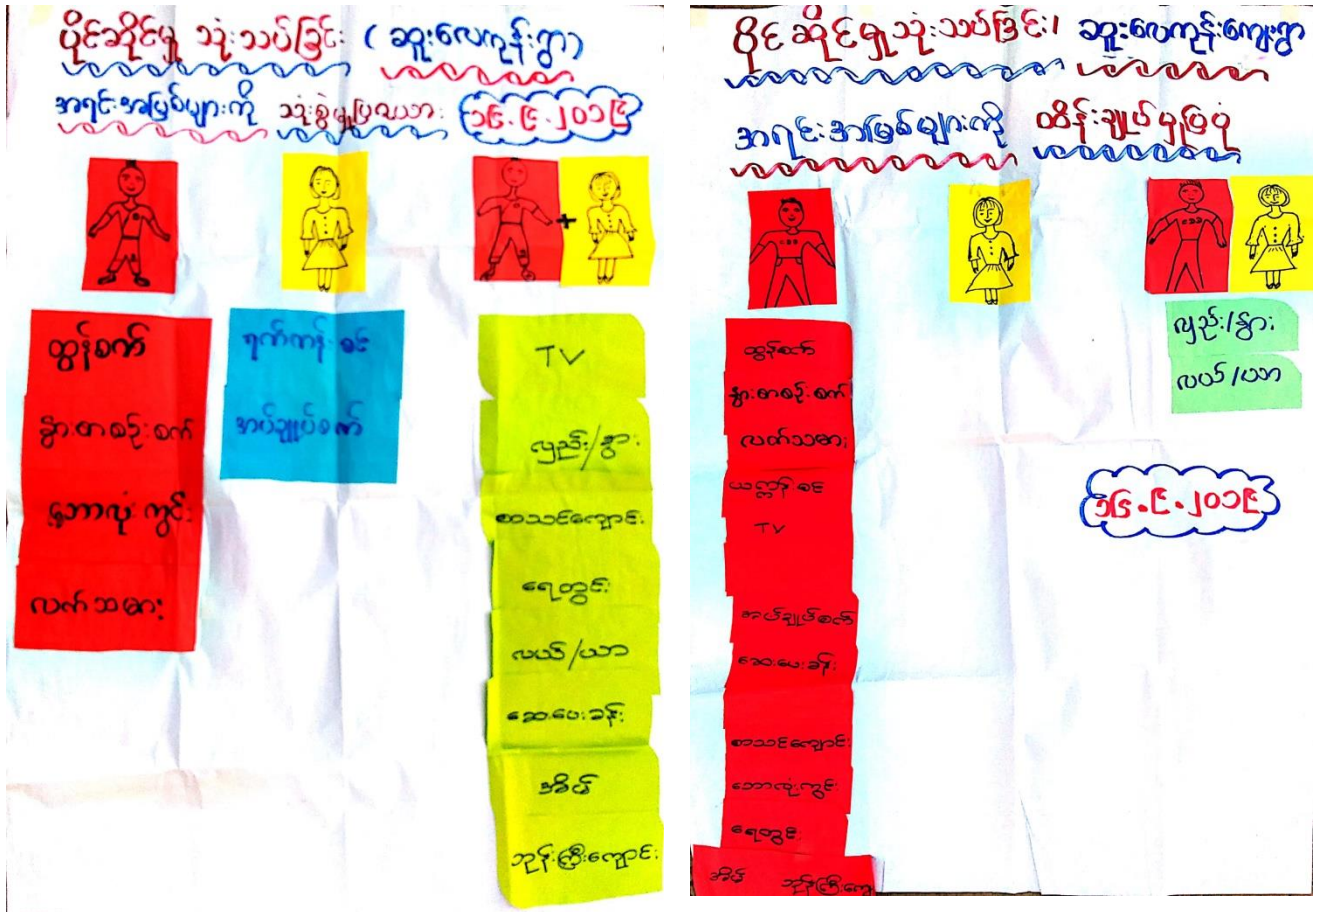 ပိုင်ဆိုင်မှု သုံးသပ်ခြင်း (ဆူးလေကုန်းရွာ)
အရင်းအမြစ်များကို သုံးစွဲမှုပြဇယား ၁၆.၉.၂၀၁၉
ထွန်စက်
နွားစာစဉ်းစက်
ဘောလုံးကွင်း
လက်သမား
ရက်ကန်းစင်
အပ်ချုပ်စက်
TV
လှည်း/နွား
စာသင်ကျောင်း
ရေတွင်း
လယ်/ယာ
ဆေးပေးခန်း
အိမ်
ဘုန်းကြီးကျောင်း
ပိုင်ဆိုင်မှုသုံးသပ်ခြင်း၊ ဆူးလေကုန်းကျေးရွာ
အရင်းအမြစ်များကို ထိန်းချုပ်မှုပြပုံ
ထွန်စက်
နွားစာစဉ်းစက်
လက်သမား
ယက္ကန်းစင်
TV
အပ်ချုပ်စက်
ဆေးပေးခန်း
စာသင်ကျောင်း
ဘောလုံးကွင်း
ရေတွင်း
အိမ် ဘုန်းကြီးကျေ
လှည်း/နွား
လယ်/ယာ
၁၆.၉.၂၀၁၉